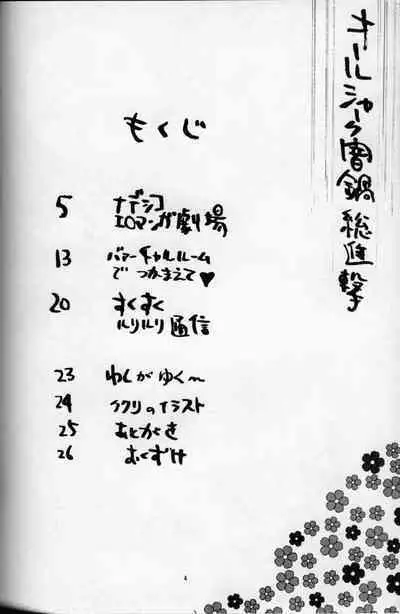 オールジャンル闇鍋総進撃
もくじ
5 ナデシコ
エロマンガ劇場
13
でつかまえて♥
20 すくすく
ルリルリ通信
23 わしがゆく〜
24 イラスト
25 あとがき
26 おくづけ